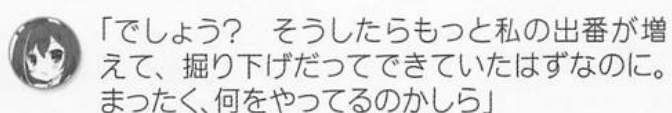 「でしょう？　そうしたらもっと私の出番が増
えて、掘り下げだってできていたはずなのに。
まったく、何をやってるのかしら」